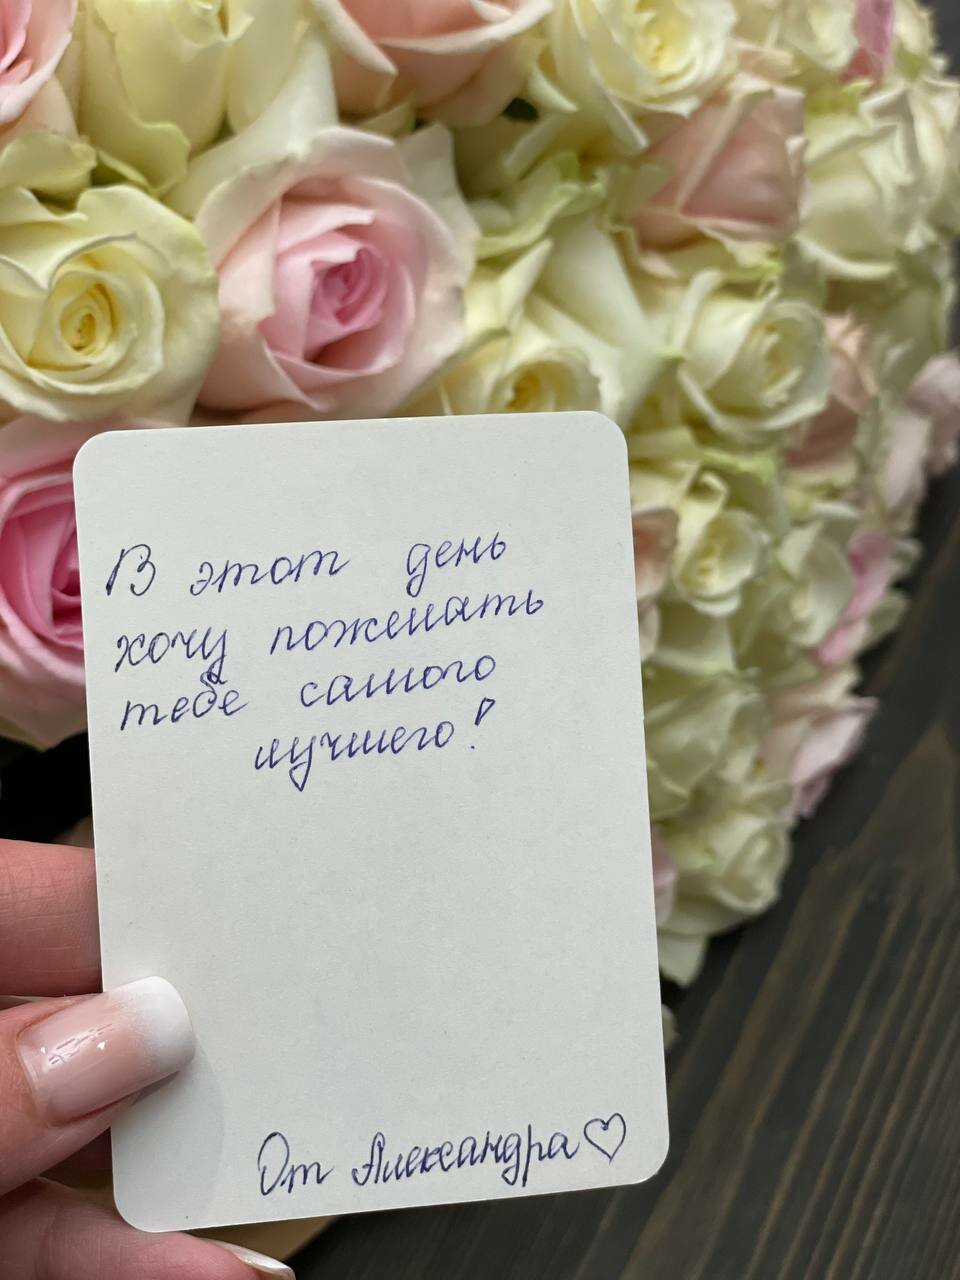 В этот день
хочу пожелать
тебе самого
лучшего!
От Александра♡